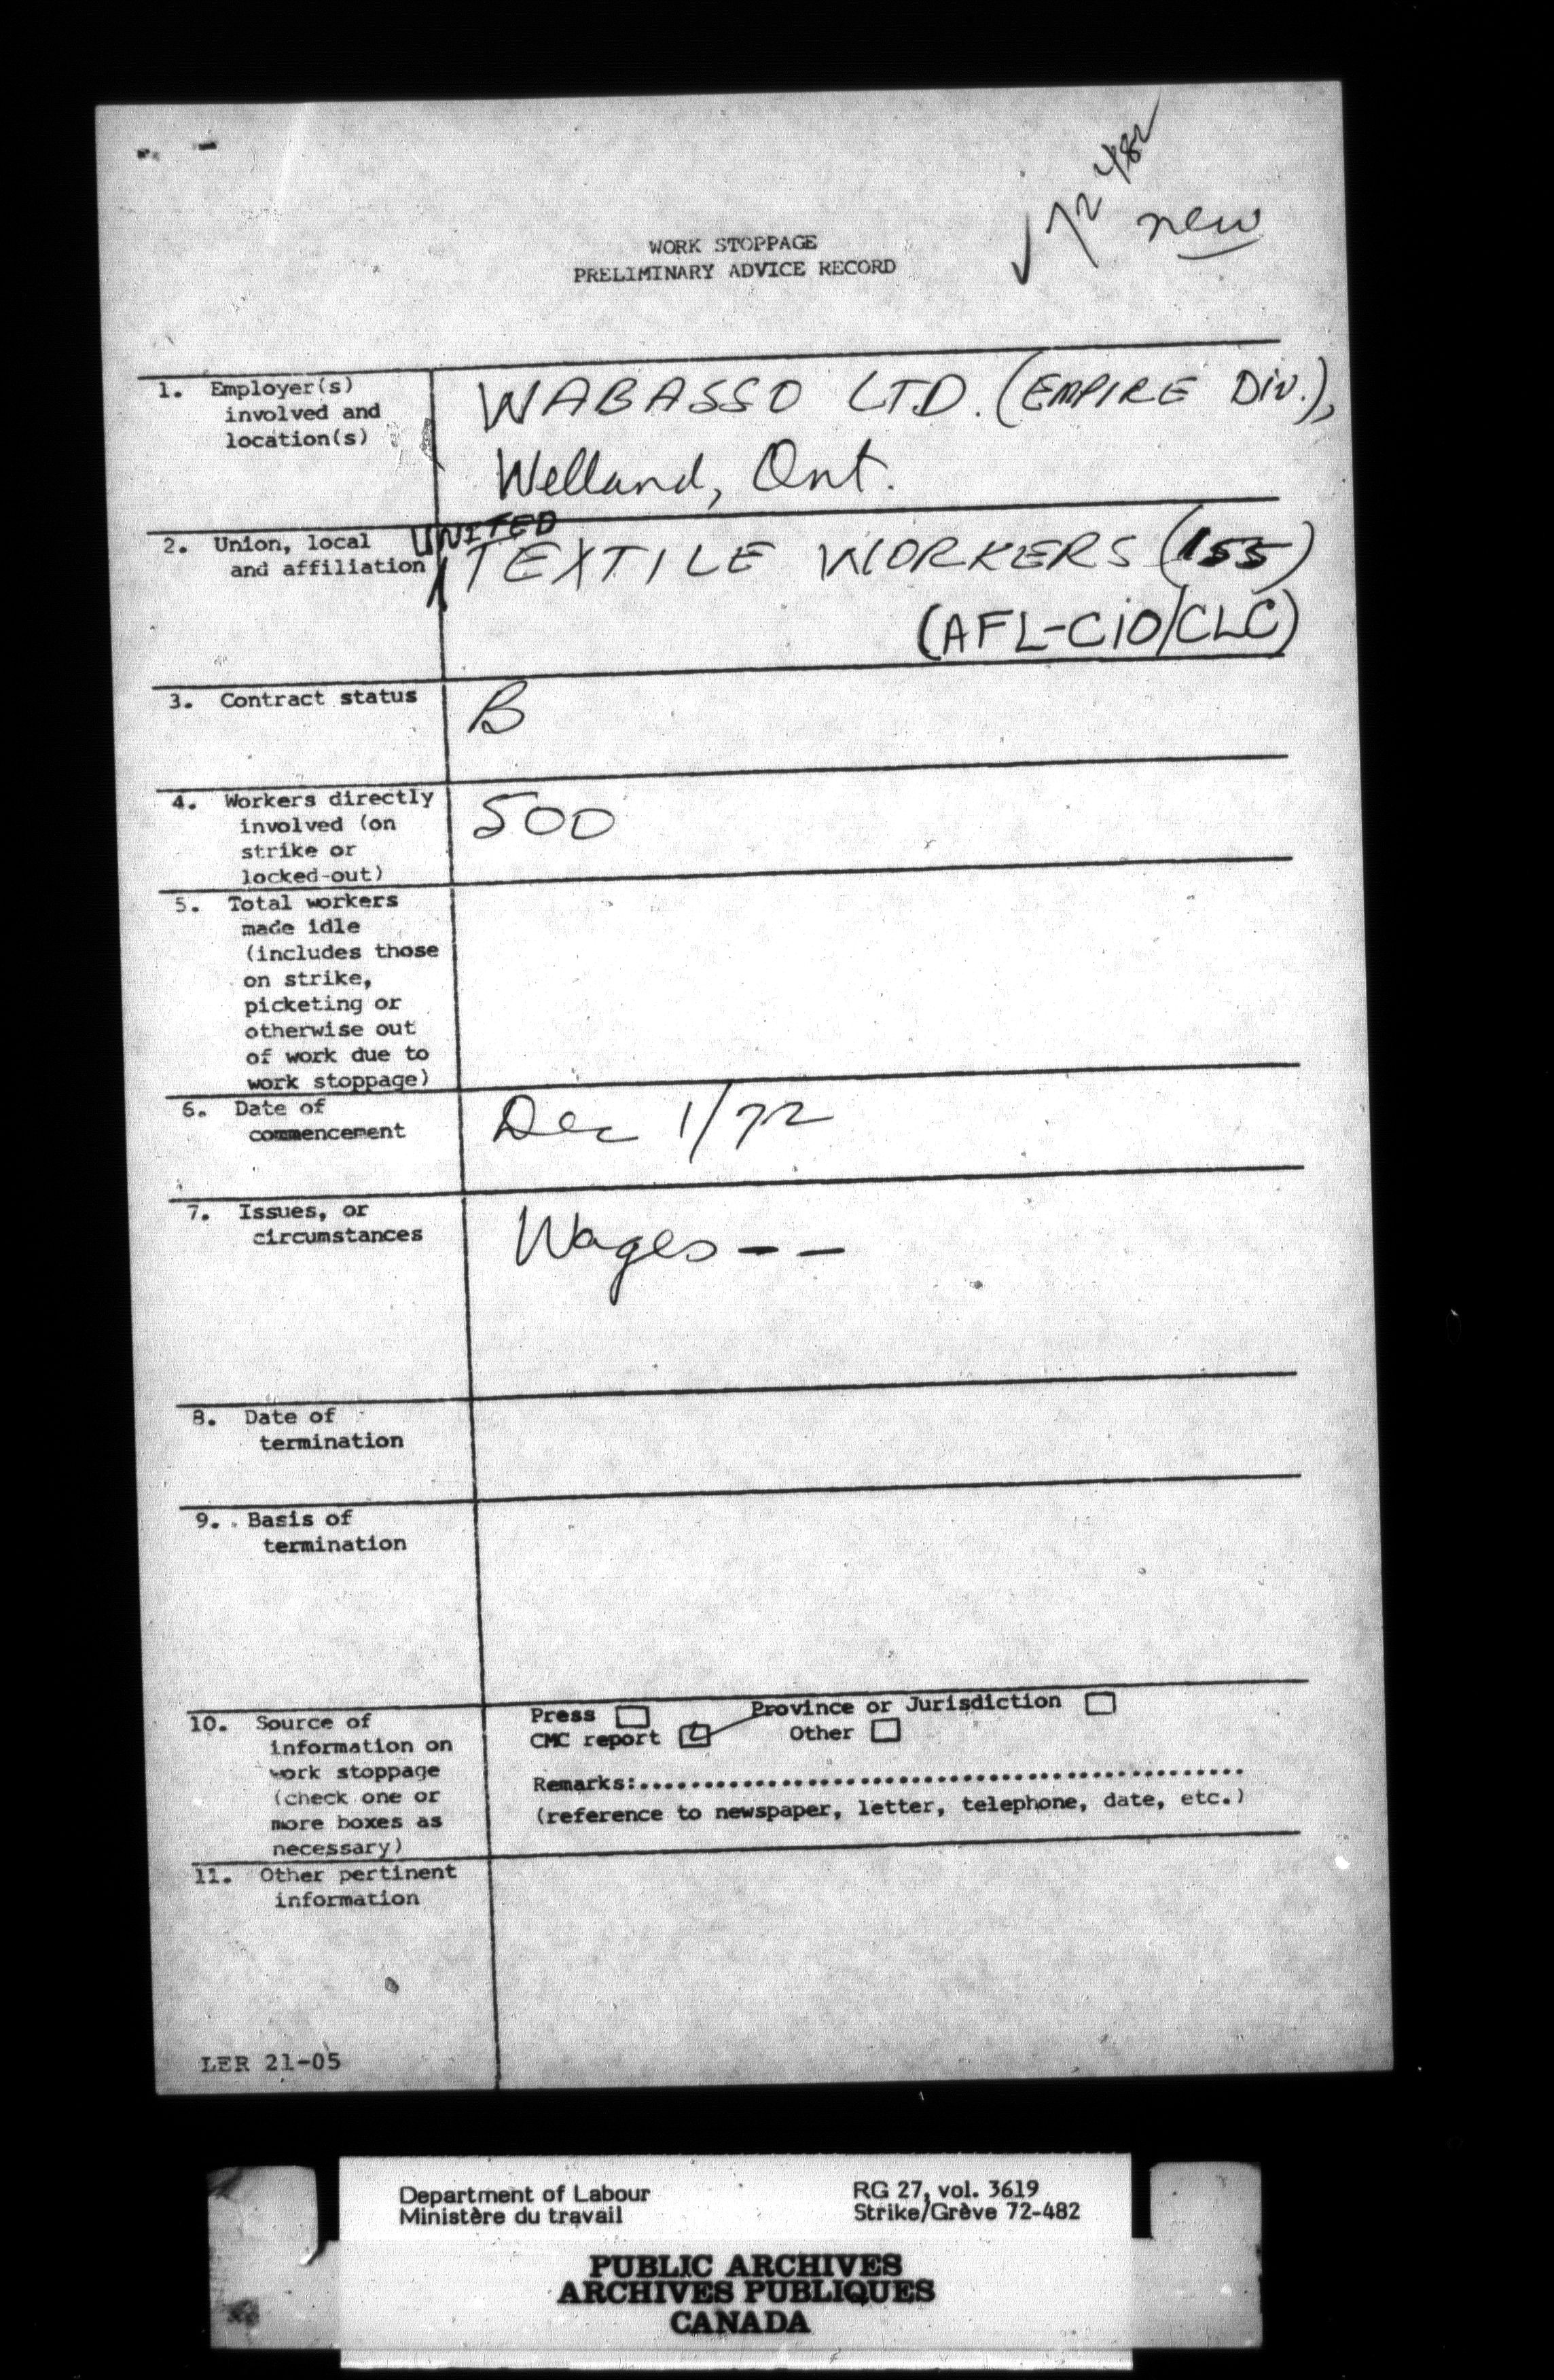 √ 72 482
new
WORK STOPPAGE
PRELIMINARY ADVICE RECORD
1. Employer(s)
involved and
location(s)
WABASSO LTD. (EMPIRE Div.),
Welland, Ont.
2. Union, local
and affiliation
UNITED
TEXTILE WORKERS (155)
(AFL-CiO/CLC)
3. Contract status
B
4. Workers directly
involved (on
strike or
locked-out)
500
5. Total workers
made idle
(includes those
on strike,
picketing or
otherwise out
of work due to
work stoppage)
6. Date of
commencement
Dec 1/72
7. Issues, or
circumstances
Wages - -
8. Date of
termination
9. Basis of
termination
10. Source of
information on
work stoppage
(check one or
more boxes as
necessary)
Press Province or Jurisdiction
CMC report Other
Remarks:................................................
(reference to newspaper, letter, telephone, date, etc.)
11. Other pertinent
information
LER 21-05
Department of Labour
Ministère du travail
RG 27, vol. 3619
Strike/Grève 72-482
PUBLIC ARCHIVES
ARCHIVES PUBLIQUES
CANADA